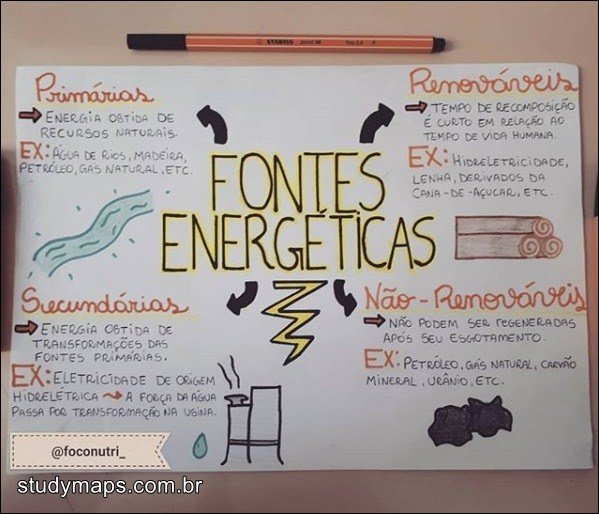 STABILO point 88 fine 0,4
FONTES
ENERGÉTICAS
Primárias
→ ENERGIA OBTIDA DE
RECURSOS NATURAIS.
EX: ÁGUA DE RIOS, MADEIRA,
PETRÓLEO, GÁS NATURAL, ETC.
Renováveis
→ TEMPO DE RECOMPOSIÇÃO
É CURTO EM RELAÇÃO AO
TEMPO DE VIDA HUMANA.
EX: HIDRELETRICIDADE,
LENHA, DERIVADOS DA
CANA-DE-AÇUCAR, ETC.
Secundárias
→ ENERGIA OBTIDA DE
TRANSFORMAÇÕES DAS
FONTES PRIMÁRIAS.
EX: ELETRICIDADE DE ORIGEM
HIDRELÉTRICA → A FORÇA DA ÁGUA
PASSA POR TRANSFORMAÇÃO NA USINA.
Não-Renováveis
→ NÃO PODEM SER REGENERADAS
APÓS SEU ESGOTAMENTO.
EX: PETRÓLEO, GÁS NATURAL, CARVÃO
MINERAL, URÂNIO, ETC.
@foconutri_
studymaps.com.br